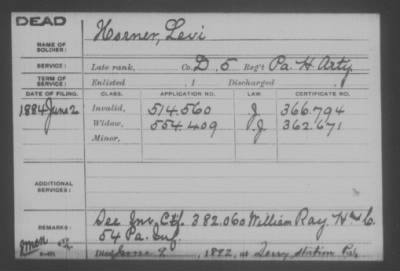 DEAD
NAME OF SOLDIER: Horner, Levi
SERVICE: Late rank, Co. D, 5 Reg't Pa. H. Arty.
TERM OF SERVICE: Enlisted , 1 Discharged , 1
DATE OF FILING. CLASS. APPLICATION NO. LAW. CERTIFICATE NO.
1884 June 2 Invalid, 514.560 J 366.794
Widow, 554.409 J 362.671
Minor,
ADDITIONAL SERVICES:
REMARKS: See Inv. Ctf. 382.060 William Ray, H C.
54 Pa. Inf.
Died June 9, 1892, at Derry Station Pa.